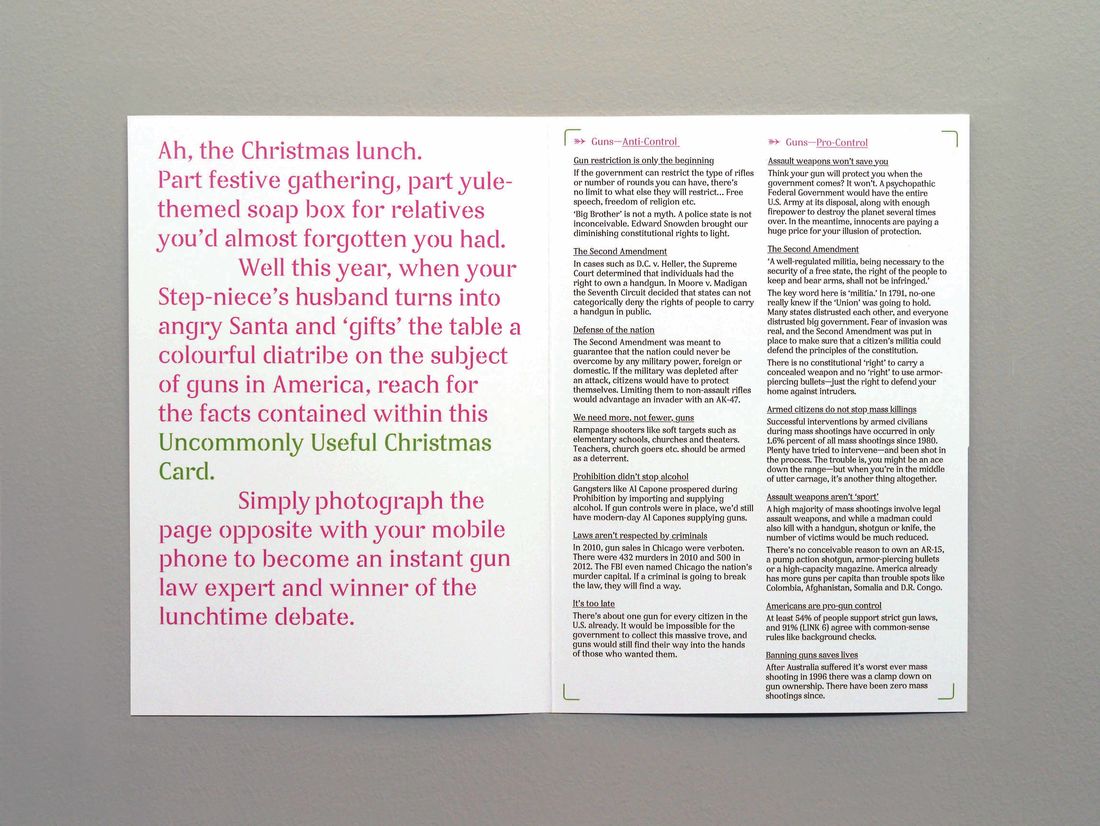 Ah, the Christmas lunch.
Part festive gathering, part yule-
themed soap box for relatives
you'd almost forgotten you had.
Well this year, when your
Step-niece's husband turns into
angry Santa and ‘gifts’ the table a
colourful diatribe on the subject
of guns in America, reach for
the facts contained within this
Uncommonly Useful Christmas
Card.
Simply photograph the
page opposite with your mobile
phone to become an instant gun
law expert and winner of the
lunchtime debate.
Guns—Anti-Control
Gun restriction is only the beginning
If the government can restrict the type of rifles
or number of rounds you can have, there's
no limit to what else they will restrict... Free
speech, freedom of religion etc.
‘Big Brother’ is not a myth. A police state is not
inconceivable. Edward Snowden brought our
diminishing constitutional rights to light.
The Second Amendment
In cases such as D.C. v. Heller, the Supreme
Court determined that individuals had the
right to own a handgun. In Moore v. Madigan
the Seventh Circuit decided that states can not
categorically deny the rights of people to carry
a handgun in public.
Defense of the nation
The Second Amendment was meant to
guarantee that the nation could never be
overcome by any military power, foreign or
domestic. If the military was depleted after
an attack, citizens would have to protect
themselves. Limiting them to non-assault rifles
would advantage an invader with an AK-47.
We need more, not fewer, guns
Rampage shooters like soft targets such as
elementary schools, churches and theaters.
Teachers, church goers etc. should be armed
as a deterrent.
Prohibition didn't stop alcohol
Gangsters like Al Capone prospered during
Prohibition by importing and supplying
alcohol. If gun controls were in place, we'd still
have modern-day Al Capones supplying guns.
Laws aren't respected by criminals
In 2010, gun sales in Chicago were verboten.
There were 432 murders in 2010 and 500 in
2012. The FBI even named Chicago the nation's
murder capital. If a criminal is going to break
the law, they will find a way.
It's too late
There's about one gun for every citizen in the
U.S. already. It would be impossible for the
government to collect this massive trove, and
guns would still find their way into the hands
of those who wanted them.
Guns—Pro-Control
Assault weapons won't save you
Think your gun will protect you when the
government comes? It won't. A psychopathic
Federal Government would have the entire
U.S. Army at its disposal, along with enough
firepower to destroy the planet several times
over. In the meantime, innocents are paying a
huge price for your illusion of protection.
The Second Amendment
‘A well-regulated militia, being necessary to the
security of a free state, the right of the people to
keep and bear arms, shall not be infringed.’
The key word here is ‘militia.’ In 1791, no-one
really knew if the ‘Union’ was going to hold.
Many states distrusted each other, and everyone
distrusted big government. Fear of invasion was
real, and the Second Amendment was put in
place to make sure that a citizen's militia could
defend the principles of the constitution.
There is no constitutional ‘right’ to carry a
concealed weapon and no ‘right’ to use armor-
piercing bullets—just the right to defend your
home against intruders.
Armed citizens do not stop mass killings
Successful interventions by armed civilians
during mass shootings have occurred in only
1.6% percent of all mass shootings since 1980.
Plenty have tried to intervene—and been shot in
the process. The trouble is, you might be an ace
down the range—but when you're in the middle
of utter carnage, it's another thing altogether.
Assault weapons aren't ‘sport’
A high majority of mass shootings involve legal
assault weapons, and while a madman could
also kill with a handgun, shotgun or knife, the
number of victims would be much reduced.
There's no conceivable reason to own an AR-15,
a pump action shotgun, armor-piercing bullets
or a high-capacity magazine. America already
has more guns per capita than trouble spots like
Colombia, Afghanistan, Somalia and D.R. Congo.
Americans are pro-gun control
At least 54% of people support strict gun laws,
and 91% (LINK 6) agree with common-sense
rules like background checks.
Banning guns saves lives
After Australia suffered it's worst ever mass
shooting in 1996 there was a clamp down on
gun ownership. There have been zero mass
shootings since.